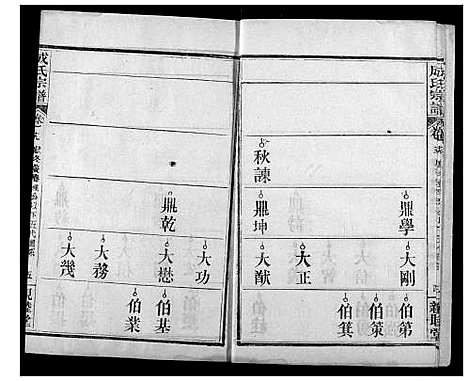 成氏宗譜
鼎學
大剛
伯第
伯策
伯箕
大正
秋諫
鼎坤
大猷
大功
鼎乾
大懋
伯基
伯業
大務
大幾
成氏宗譜